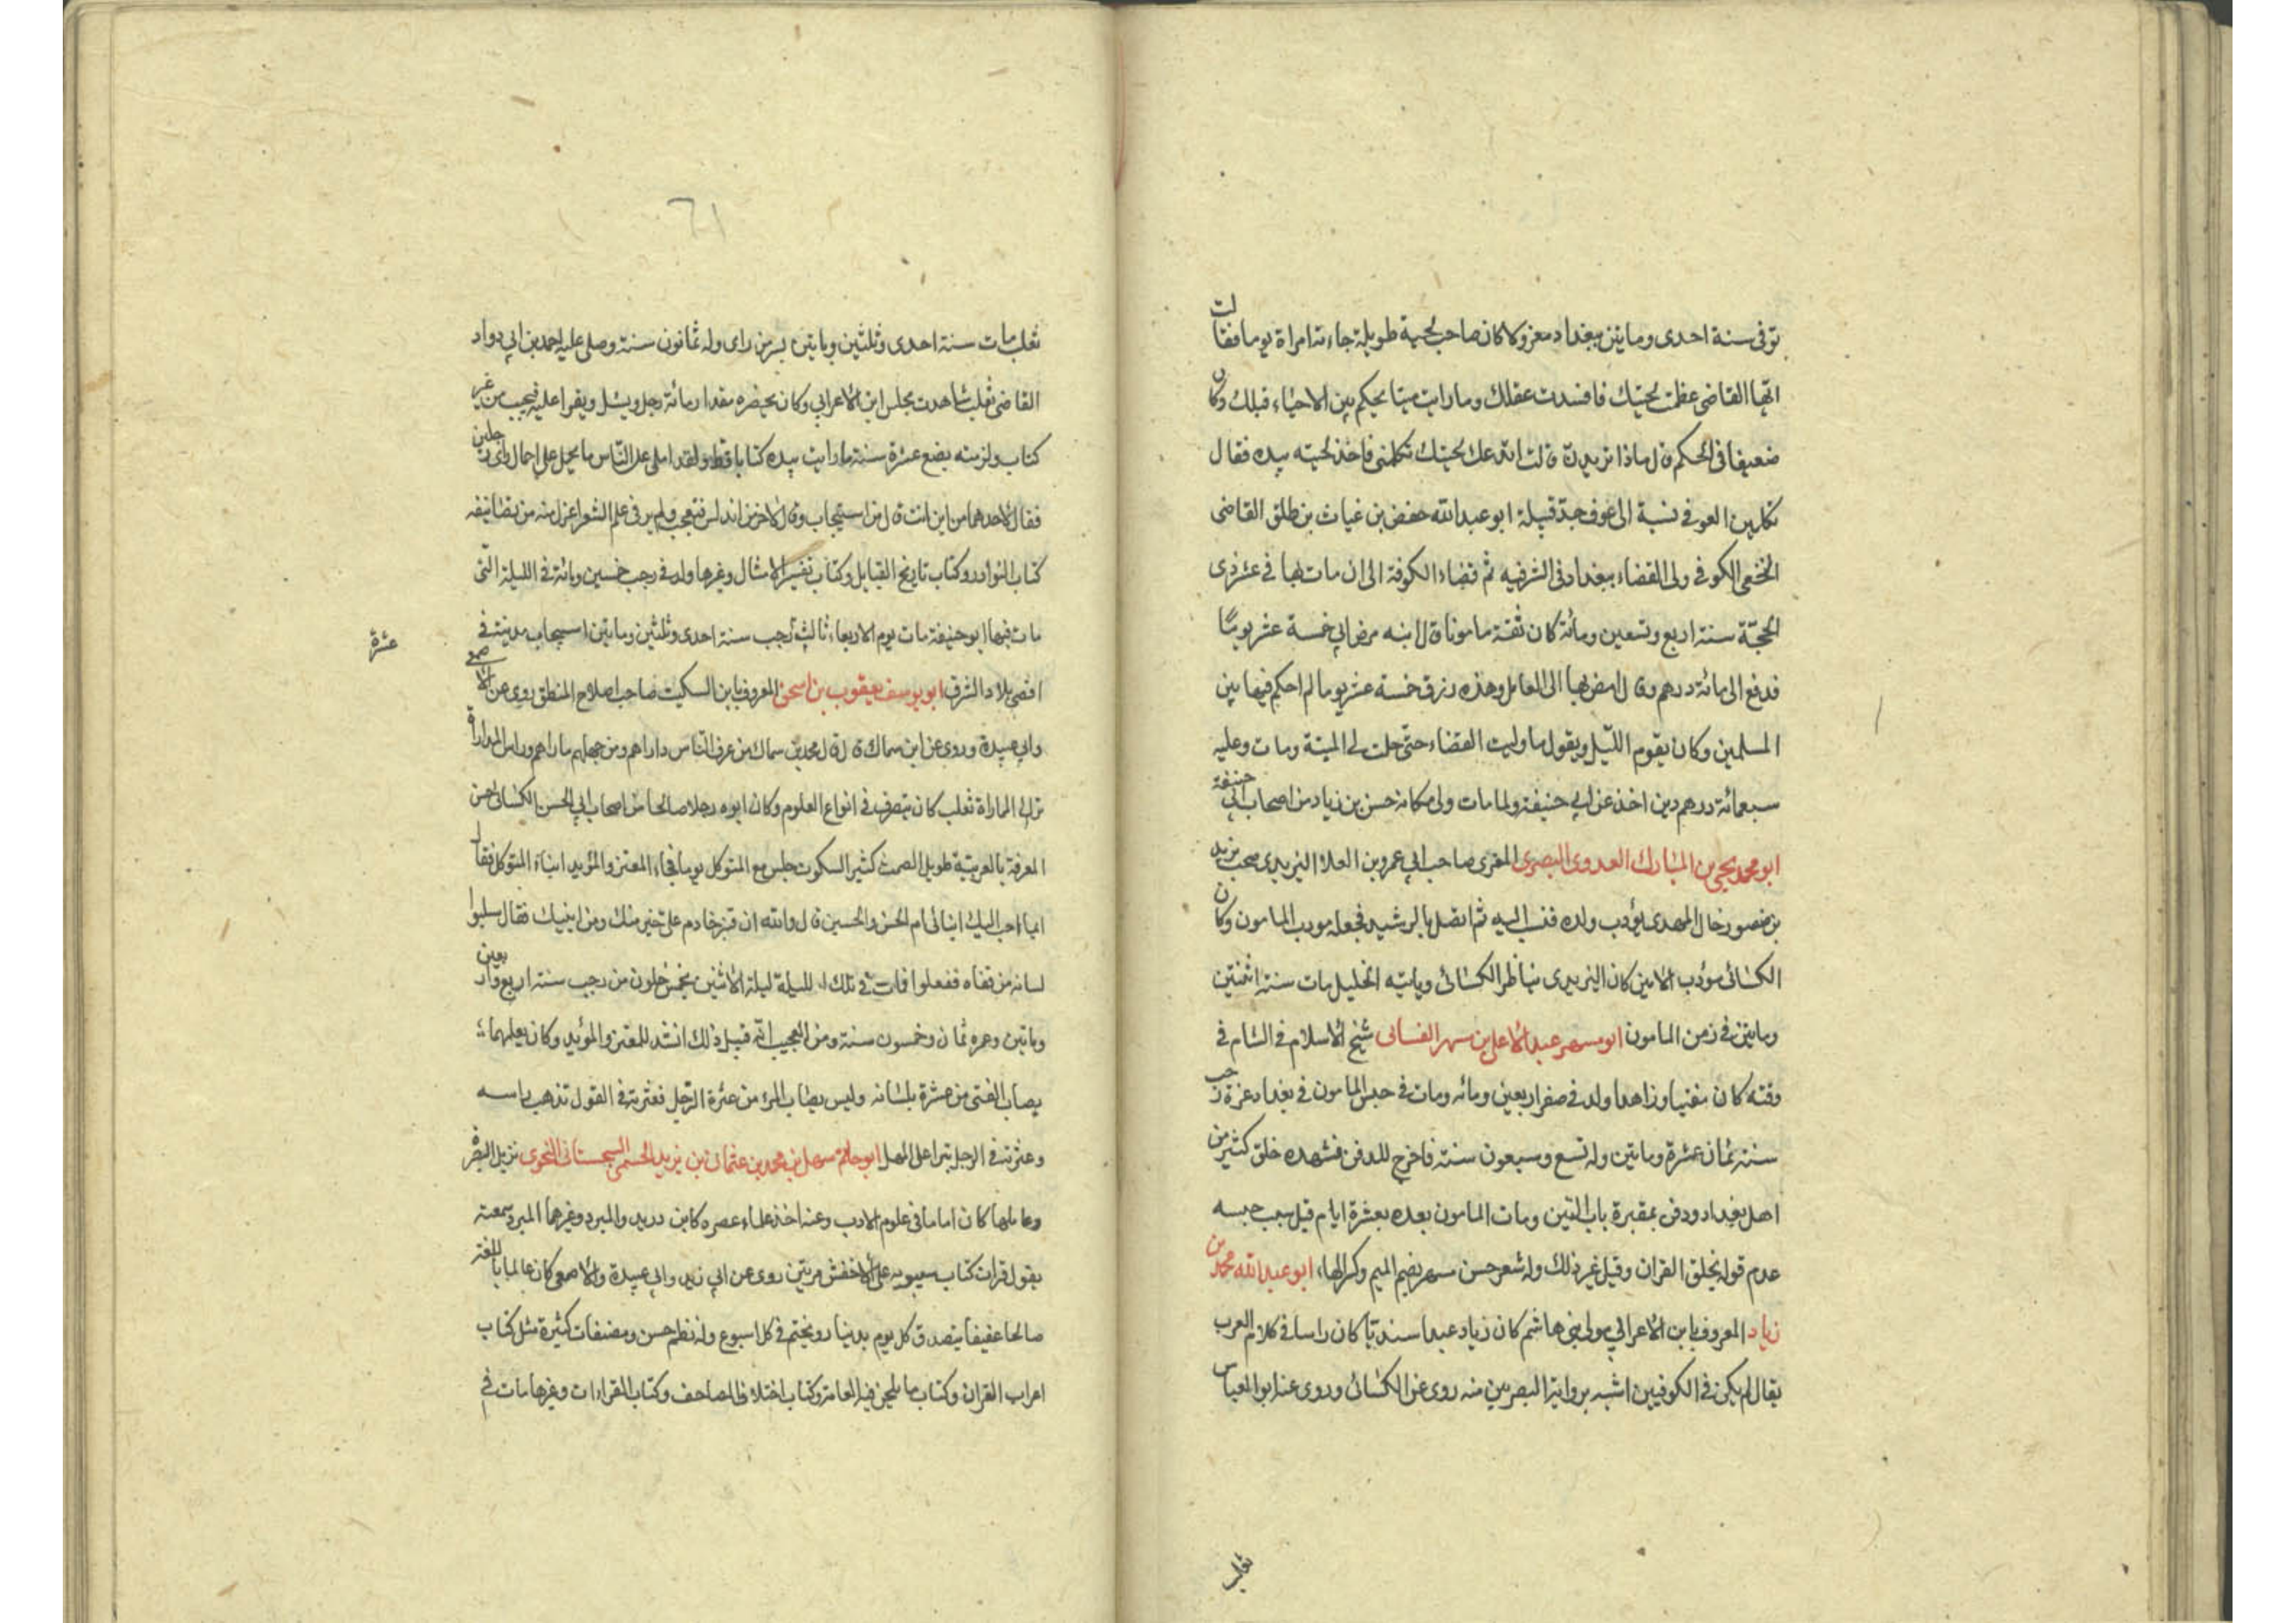 توفى سنة احدى وماتين ببغداد معزولا كان صاحب لحية طويلة جاءته امراة يوما فقالت
ايها القاضى عظمت لحيتك فافسدت عقلك وما رايت ميتا يحكم بين الاحياء قبلك وكان
ضعيفا فى الحكم قال ماذا تريدين قالت اتدعك لحيتك تكلمنى فاخذ لحيته بيده فقال
تكلمين العوفى نسبة الى عوف جد قبيلة ابو عبد الله حفص بن غياث بن طلق القاضى
النخعى الكوفى ولى القضاء ببغداد فى الشرقيه ثم قضاء الكوفة الى ان مات بها فى عشر ذى
الحجّة سنة اربع وتسعين ومائة كان ثقة مامونا قال ابنه مرض ابي خمسة عشر يومًا
فدفع الى مائة درهم وقال امض بها الى العامل وهذه رزق خمسة عشر يوما لم احكم فيها بين
المسلمين وكان يقوم اللّيل ويقول ما وليت القضاء حتّى حلت لى الميتة ومات وعليه
سبعمائة درهم دين اخذ عن ابي حنيفة ولما مات ولى مكانه حسن بن زياد من اصحاب ابي حنيفة
ابو محمد يحيى بن المبارك العدوى البصرى المقرى صاحب ابي عمرو بن العلا اليزيدى صحب يزيد
بن منصور خال المهدى يؤدب ولده فنسب اليه ثم اتصل بالرشيد فجعله مودب المامون وكان
الكسائى مؤدب الامين كان اليزيدى يناظر الكسائى وياتيه الخليل مات سنة اثنتين
وماتين فى زمن المامون ابو مسهر عبد الاعلى بن مسهر الغسانى شيخ الاسلام فى الشام فى
وقته كان مفتيا وزاهدا ولد فى صفر اربعين ومائه ومات فى حبس المامون فى بغداد غزة رجب
سنة ثمان عشرة وماتين وله تسع وسبعون سنة فاخرج للدفن فشهده خلق كثير من
اهل بغداد ودفن بمقبرة باب التين ومات المامون بعده بعشرة ايام قيل سبب حبسه
عدم قوله بخلق القران وقيل غير ذلك وله شعر حسن مسهر بضم الميم وكسر الها، ابو عبد الله محمد بن
زياد المعروف بابن الاعرابي مولى بنى هاشم كان زياد عبدا سنديّا كان راسا فى كلام العرب
يقال لم يكن فى الكوفيين اشبه برواية البصريين منه روى عن الكسائى وروى عنه ابو العباس
ثعلب
٦١
ثعلب مات سنة احدى وثلثين وماتين بسر من راى وله ثمانون سنة وصلى عليه احمد بن ابي دواد
القاضى ثعلب شاهدت مجلس ابن الاعرابي وكان يحضره مقدار مائة رجل ويسئل ويقرا عليه فيجيب من غير
كتاب ولزمته بضع عشرة سنة ما رايت بيده كتابا قط ولقد املى على النّاس ما يحمل على اجمال وراى رجلين
فقال لاحدهما من اين انت قال من اسبيجاب وقال لاخر من اندلس فتعجب ولم ير فى علم الشعر اغزل منه من تصانيفه
كتاب النوادر وكتاب تاريخ القبايل وكتاب تفسير الامثال وغيرها ولد فى رجب خمسين ومائة فى الليلة التى
مات فيها ابو حنيفة مات يوم الاربعاء ثالث رجب سنة احدى وثلثين وماتين اسبيجاب مدينة فى
عشرة
اقصى بلاد الشرق ابو يوسف يعقوب بن اسحق المعروف بابن السكيت صاحب اصلاح المنطق روى عن الاصمعى
وابي عبيدة وروى عن ابن سماك قال قال محمد بن سماك من عرف النّاس داراهم ومن جهلهم ماراهم وراس المداراة
ترك المماراة ثعلب كان يتصرف فى انواع العلوم وكان ابوه رجلا صالحا من اصحاب ابي الحسن الكسائى حسن
المعرفة بالعربيّة طويل الصمت كثير السكوت جلس مع المتوكل يوما فجاء المعتز والمؤيد ابناء المتوكل فقال
ايما احب اليك ابنائى ام الحسن والحسين قال والله ان قنبر خادم على خير منك ومن ابنيك فقال سلوا
لسانه من قفاه ففعلوا فمات فى تلك الليلة ليلة الاثنين لخمس خلون من رجب سنة اربع واربعين
وماتين وعمره ثمان وخمسون سنة ومن العجيب انّه قبيل ذلك انشد للمعتز والمؤيد وكان يعلهما
يصاب الفتى من عشرة بلسانه وليس يصاب المرء من عثرة الرّجل فعثرته فى القول تذهب راسه
وعثرته فى الرجل تبرا على المهل ابو حاتم سهل بن محمد بن عثمان بن يزيد الجشمى السجستانى النحوى نزيل البصرة
وعالمها كان اماما فى علوم الادب وعنه اخذ علماء عصره كابن دريد والمبرد وغيرهما المبرد سمعته
يقول قرات كتاب سيبويه على الاخفش مرتين روى عن ابي زيد وابي عبيدة والاصمعى كان عالما باللغة
صالحا عفيفا يتصدق كل يوم بدينار ويختم فى كل اسبوع وله نظم حسن ومصنفات كثيرة مثل كتاب
اعراب القران وكتاب ما يلحن فيه العامة وكتاب اختلاف المصاحف وكتاب القراءات وغيرها مات فى